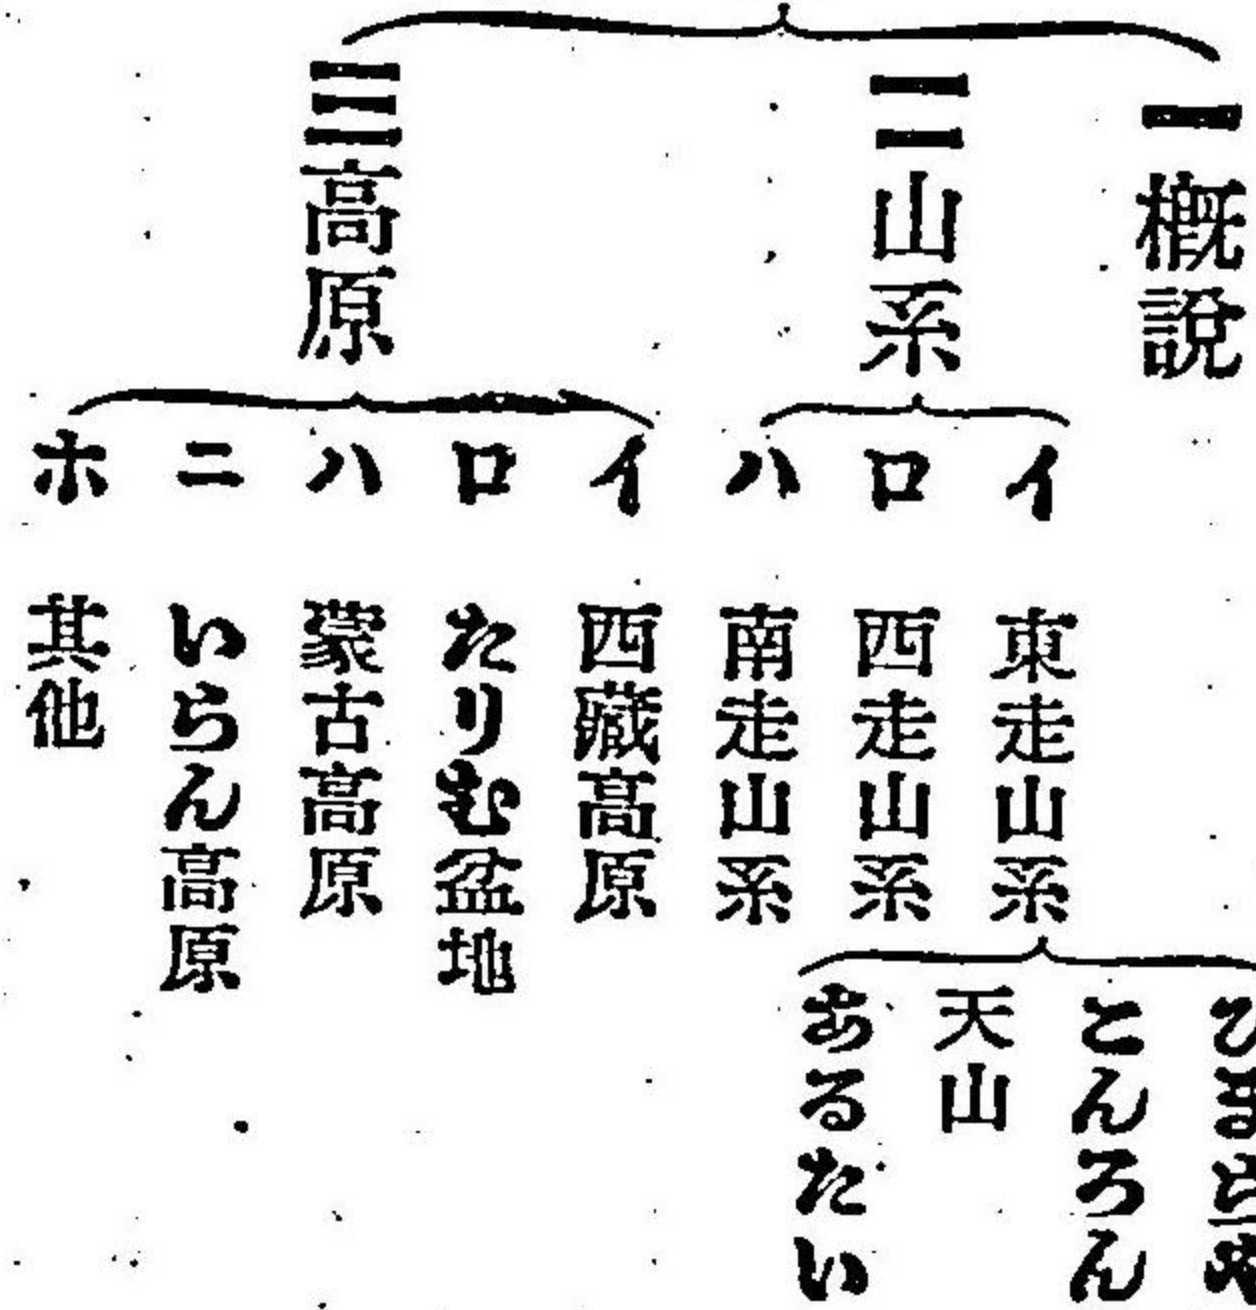 一 概説
二 山系
イ 東走山系
ひまらや
こんろん
天山
あるたい
ロ 西走山系
ハ 南走山系
三 高原
イ 西藏高原
ロ たりむ盆地
ハ 蒙古高原
ニ いらん高原
ホ 其他